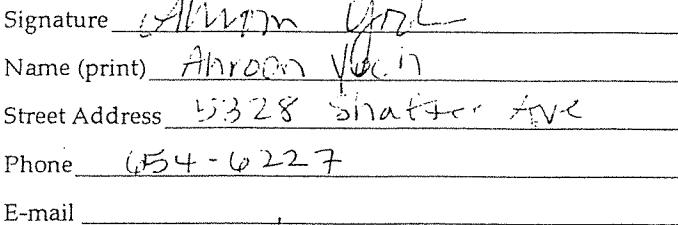 Signature
Name (print) Ahroon
Street Address 5328 Shatter Ave
Phone 654-6227
E-mail